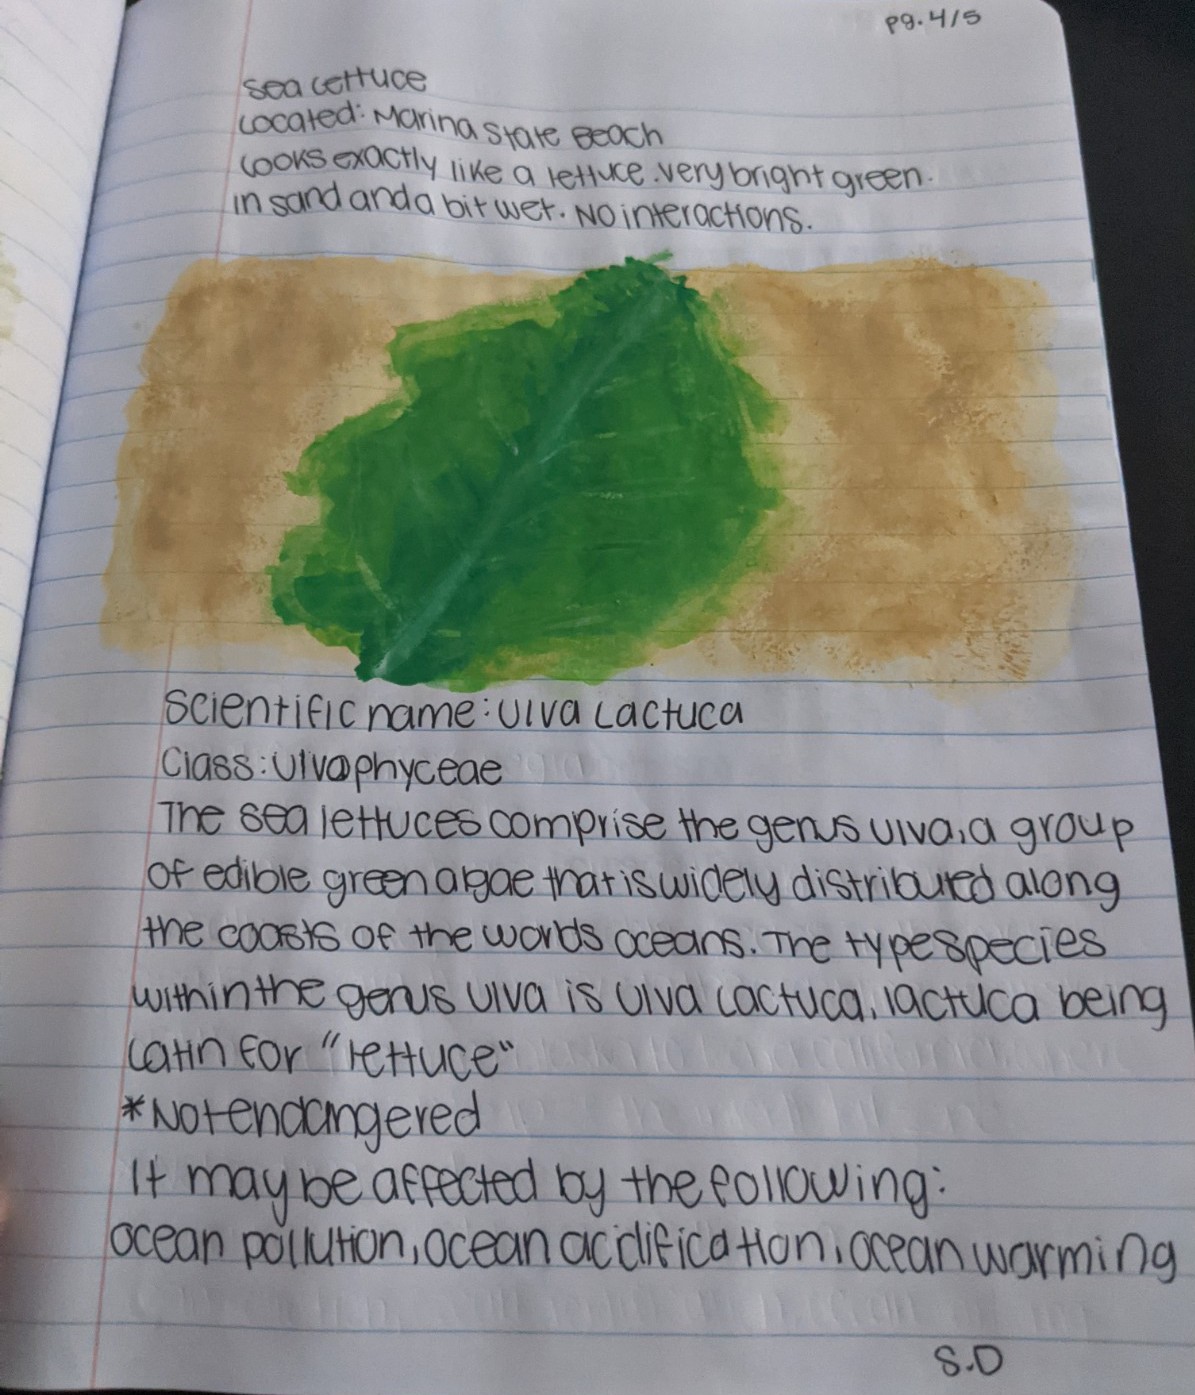 pg. 4/5
Sea Lettuce
Located: Marina State Beach
Looks exactly like a lettuce. very bright green.
In sand and a bit wet. No interactions.
Scientific name: Ulva Lactuca
Class: Ulvophyceae
The sea lettuces comprise the genus ulva, a group
of edible green algae that is widely distributed along
the coasts of the worlds oceans. The type species
within the genus Ulva is Ulva Lactuca, lactuca being
Latin for "lettuce"
*Not endangered
It may be affected by the following:
ocean pollution, ocean acidification, ocean warming
S.D